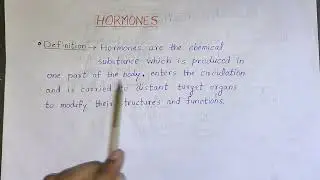 HORMONES
• Definition → Hormones are the chemical
substance which is produced in
one part of the body, enters the circulation
and is carried to distant target organs
to modify their structures and functions.